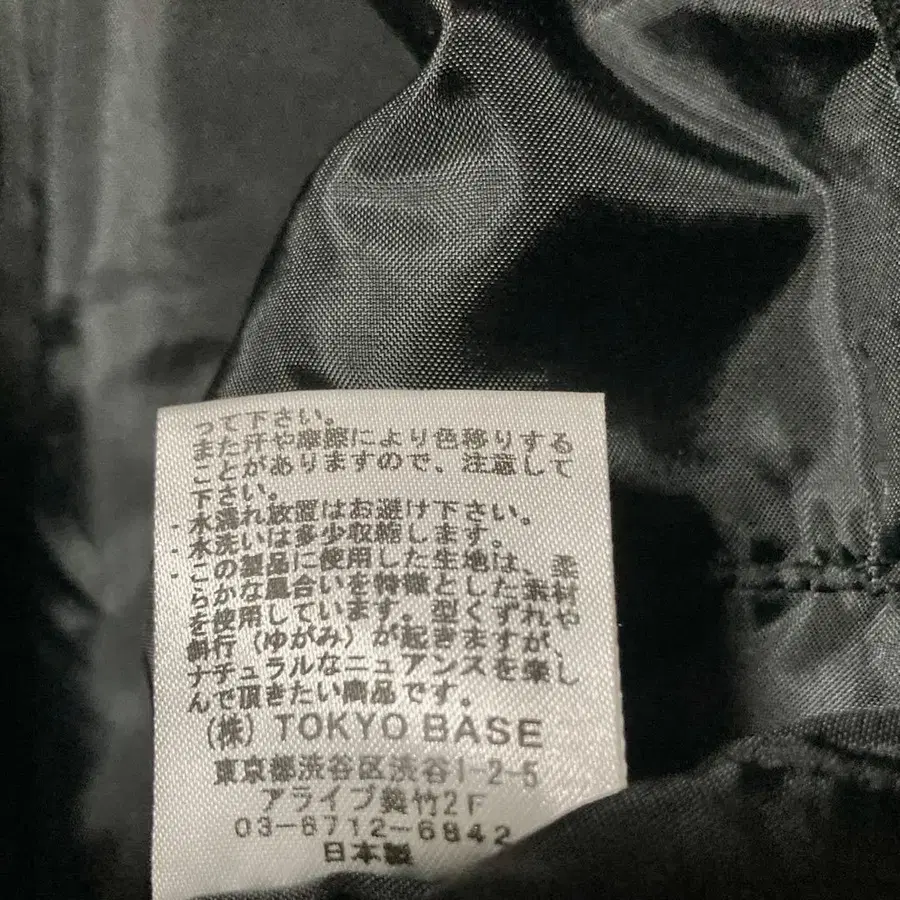 って下さい。
また汗や摩擦により色移りする
ことがありますので、注意して
下さい。
・水濡れ放置はお避け下さい。
・水洗いは多少収縮します。
・この製品に使用した生地は、柔
らかな風合いを特徴とした素材
を使用しています。型くずれや
斜行（ゆがみ）が起きますが、
ナチュラルなニュアンスを楽し
んで頂きたい商品です。
（株）TOKYO BASE
東京都渋谷区渋谷1-2-5
アライブ美竹2F
03-6712-6842
日本製